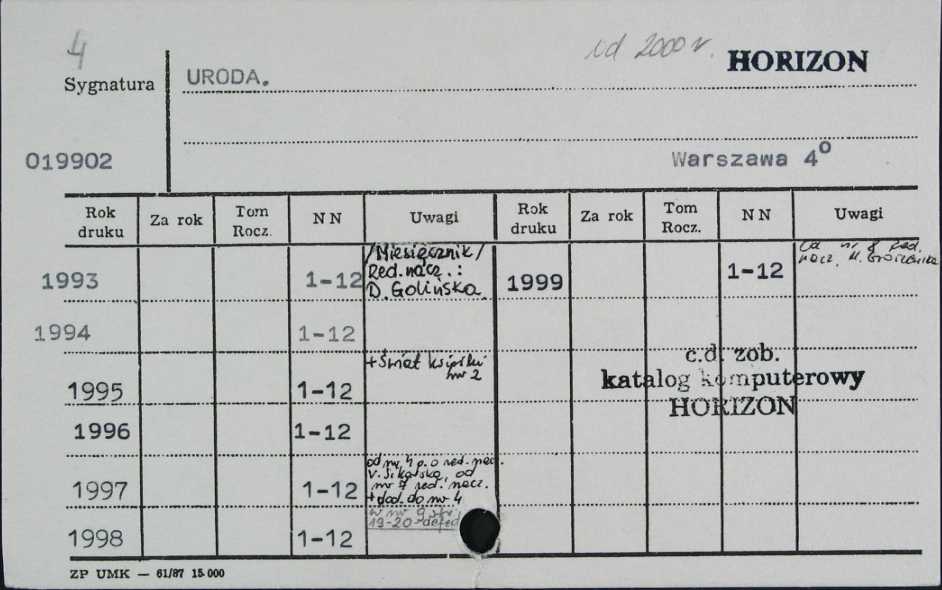 4
od 2000 r. HORIZON
Sygnatura URODA.
019902 Warszawa 4⁰
Rok druku Za rok Tom Rocz. NN Uwagi Rok druku Za rok Tom Rocz. NN Uwagi
1993 1-12 /Miesięcznik/
Red. nacz.:
D. Golińska.
1999 1-12 Od nr 8 Red.
nacz. M.
1994 1-12
1995 1-12 + Świat książki
nr 2
c.d. zob.
katalog komputerowy
HORIZON
1996 1-12
1997 1-12 od nr 4 p.o red. nacz.
V. Sikorska, od
nr 7 red. nacz.
+ dod. do nr 4
1998 1-12 w nr 9 str.
19-20 defed
ZP UMK — 61/87 15.000